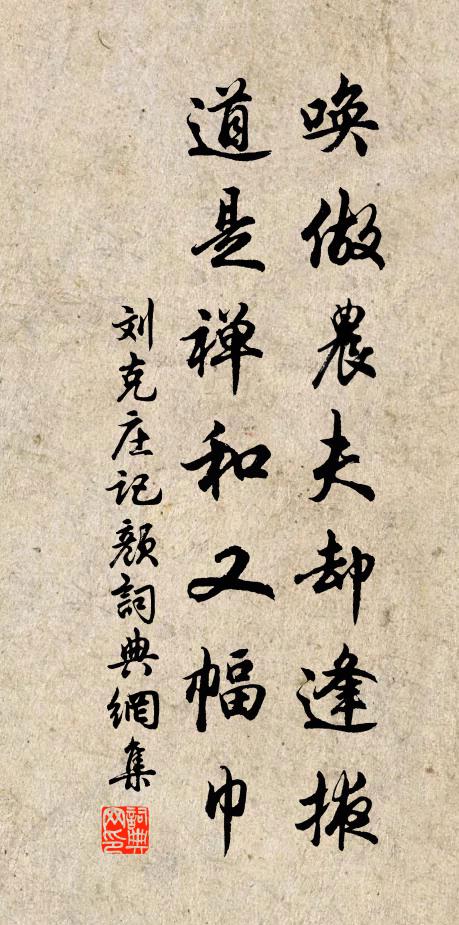 唤做農夫却逢掖
道是禅和又幅巾
刘克庄记颜詞典網集
詞典网印